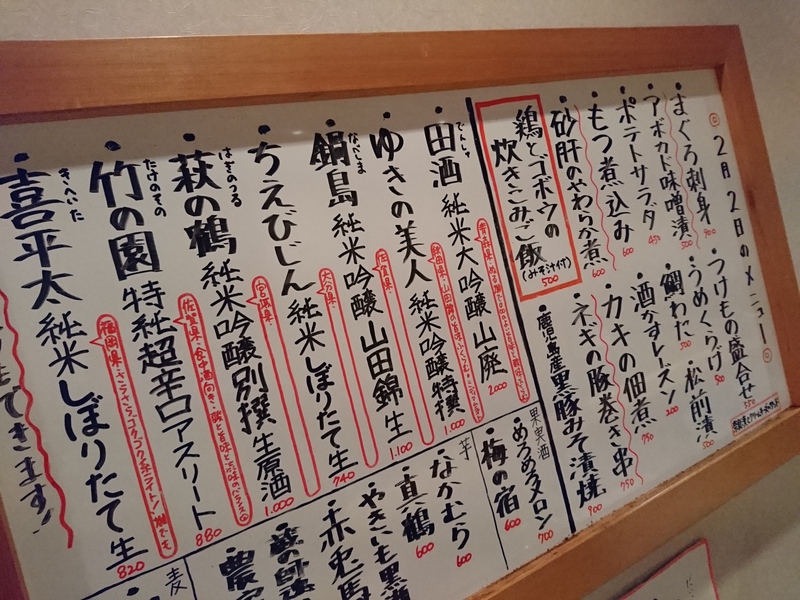 2月2日のメニュー
・まぐろ刺身 900
・アボカド味噌漬 500
・ポテトサラダ 450
・もつ煮込み 600
・砂肝のやわらか煮 600
・つけもの盛合せ 550
・うめくらげ 500
・松前漬 500
・鯛わた 500
・酒かすレーズン 200
・カキの佃煮 750
・ネギの豚巻き串 750
・鹿児島産黒豚みそ漬焼 900
鶏とゴボウの
炊きこみご飯
(みそ汁付) 500
・田酒 純米大吟醸 山廃 2000
でんしゅ
青森県
・ゆきの美人 純米吟醸特撰 1.000
秋田県
・鍋島 純米吟醸 山田錦 生 1.100
なべしま
佐賀県
・ちえびじん 純米しぼりたて生 740
大分県
・萩の鶴 純米吟醸別撰 生原酒 1.000
はぎのつる
宮城県
・竹の園 特純超辛口アスリート 880
たけのその
佐賀県
・喜平太 純米しぼりたて 生 820
きへいた
福岡県
できます!
果実酒
・めろめろメロン 700
・梅の宿 600
芋
・なかむら 600
・真鶴 600
・やきいも黒瀬
・赤兎馬
麦